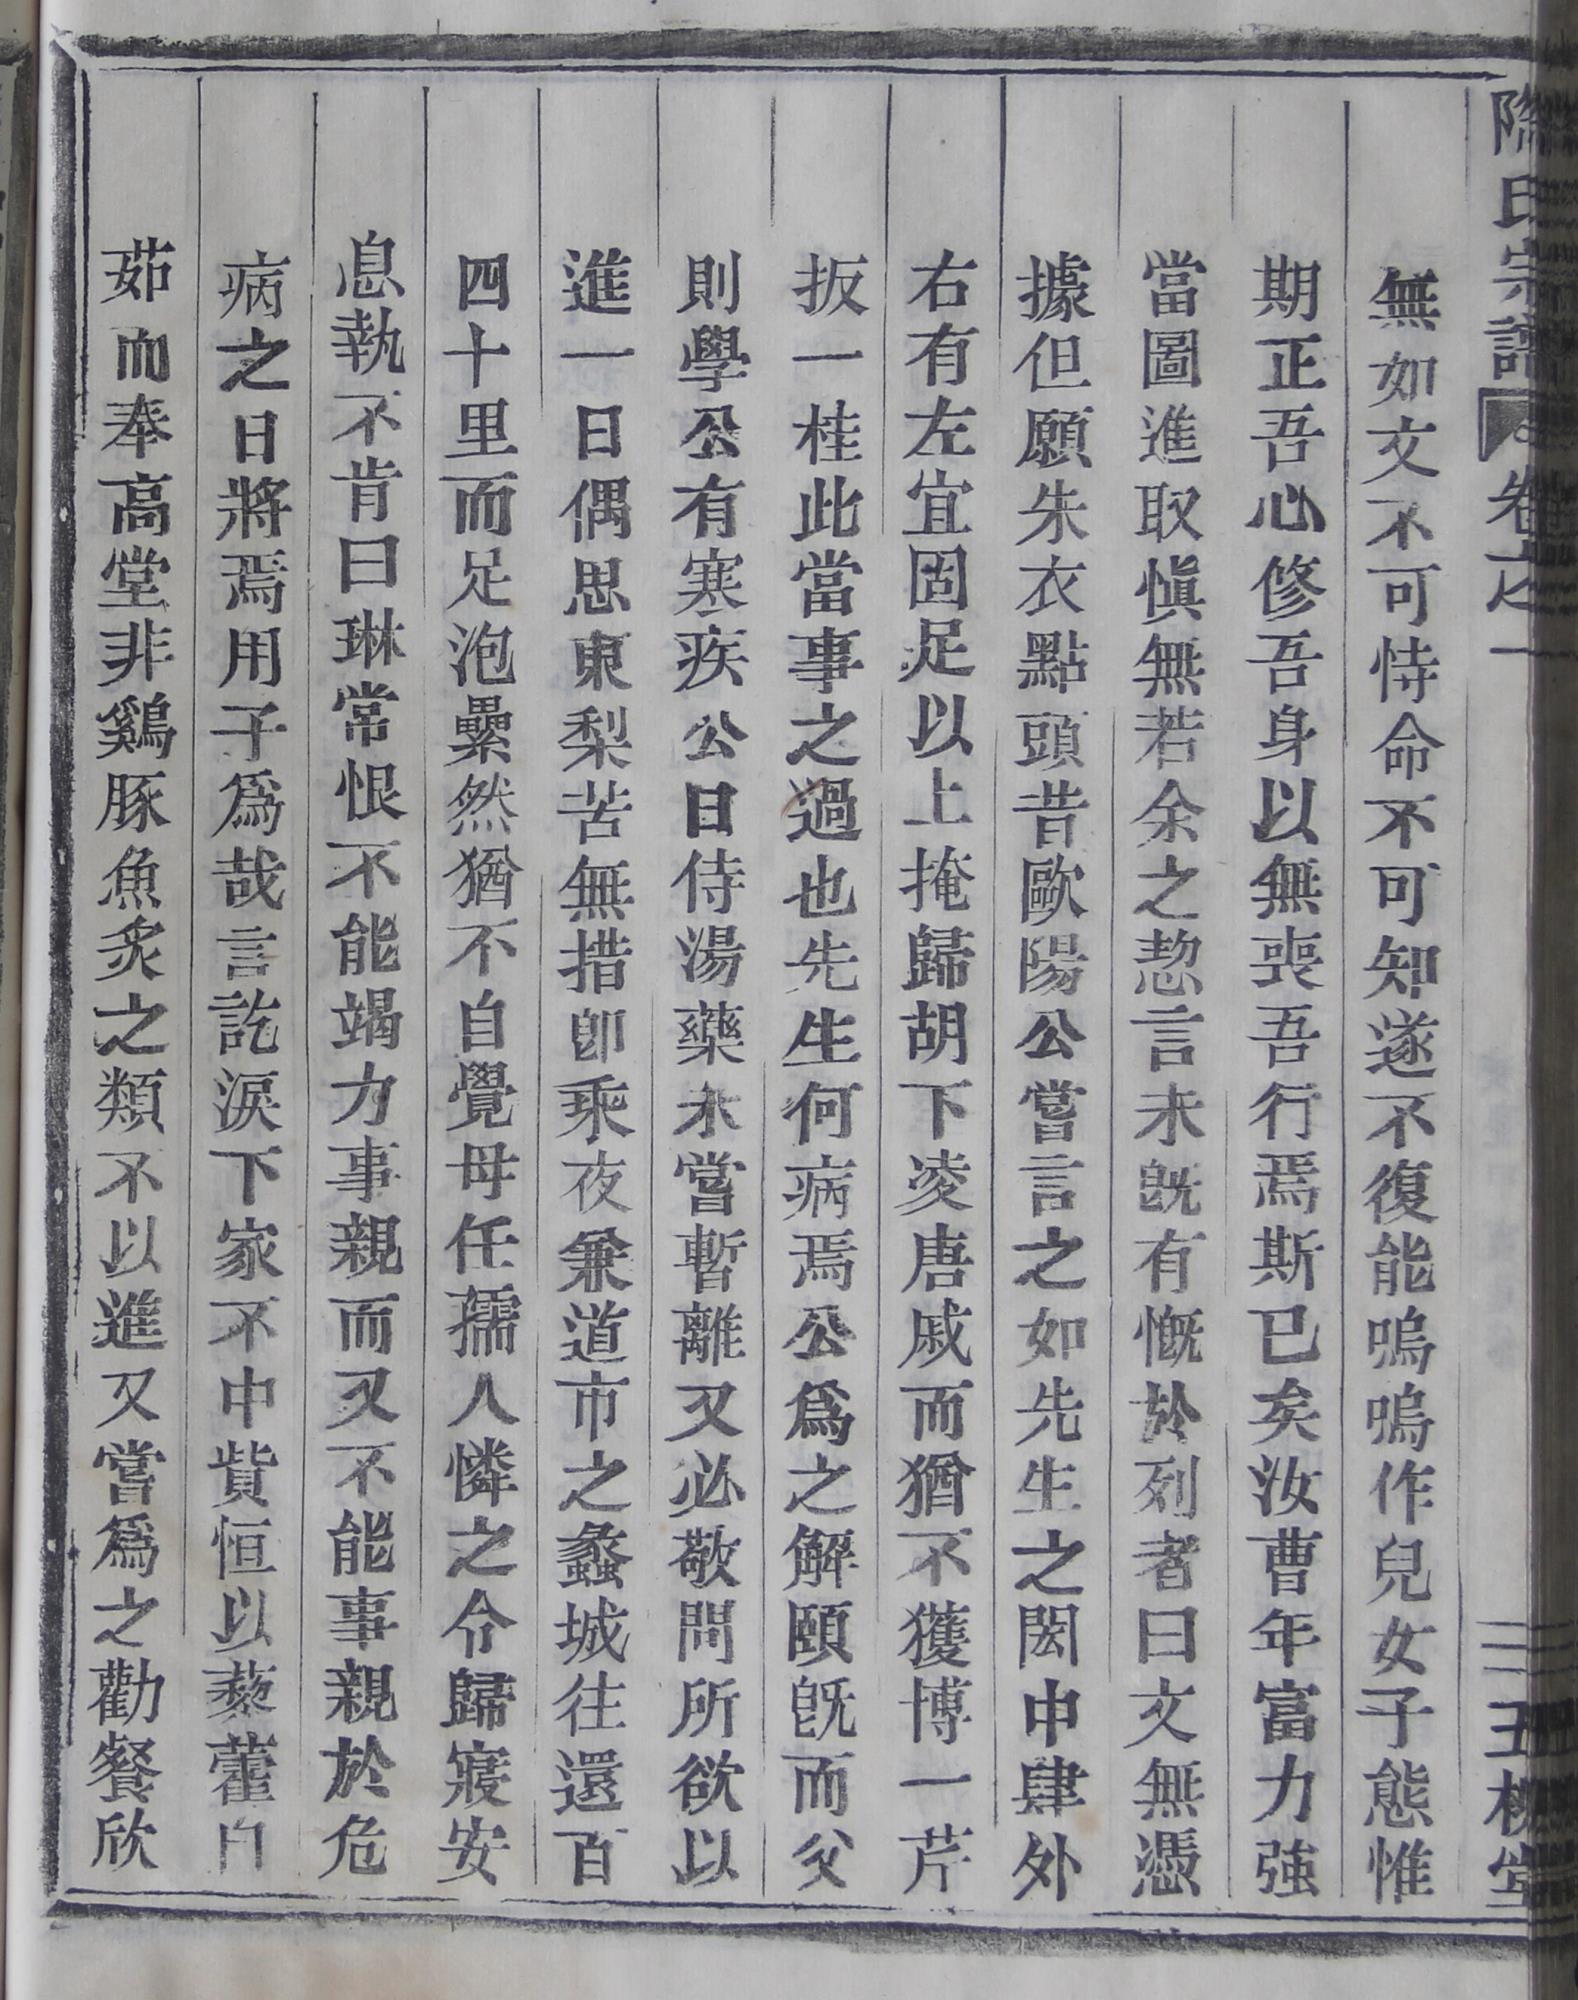 陶氏宗譜 卷之一 五柳堂
無如文不可恃命不可知遂不復能嗚嗚作兒女子態惟
期正吾心修吾身以無喪吾行焉斯已矣汝曹年富力強
當圖進取愼無若余之恝言未旣有慨於列者曰文無憑
據但願朱衣點頭昔歐陽公嘗言之如先生之閎中肆外
右有左宜固足以上掩歸胡下凌唐戚而猶不獲博一芹
扳一桂此當事之過也先生何病焉公爲之解頤旣而父
則學公有寒疾公日侍湯藥未嘗暫離又必敬問所欲以
進一日偶思東梨苦無措卽乘夜兼道市之蠡城往還百
四十里而足泡纍然猶不自覺母任孺人憐之令歸寢安
息執不肯曰琳常恨不能竭力事親而又不能事親於危
病之日將焉用子爲哉言訖淚下家不中貲恒以藜藿自
茹而奉高堂非鷄豚魚炙之類不以進又嘗爲之勸餐欣